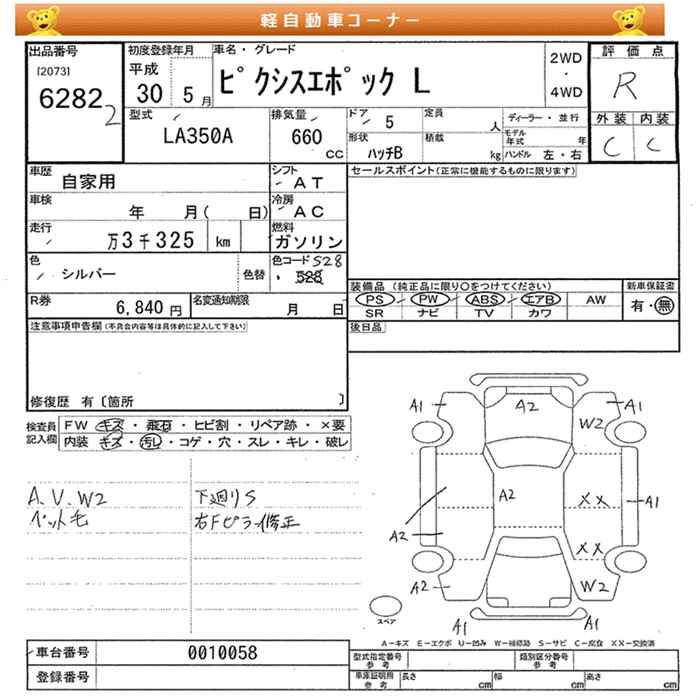 軽自動車コーナー
出品番号
[2073]
6282 2
初度登録年月
平成
30 5月
車名・グレード
ピクシスエポック L
2WD
・
4WD
評価点
R
外装 内装
C C
型式
LA350A
排気量
660
cc
ドア 5
形状
ハッチB
定員
人
積載
kg
ディーラー・並行
モデル年式 年
ハンドル 左・右
車歴 自家用
シフト AT
車検 年 月( 日)
冷房 AC
走行 万3千325 km
燃料 ガソリン
色 シルバー
色替
色コード 528
528
R券 6,840 円
名変通知期限 月 日
セールスポイント(正常に機能するものに限ります)
装備品 (純正品に限り○をつけてください)
PS PW ABS エアB AW
SR ナビ TV カワ
新車保証書
有・無
後日品
注意事項申告欄(不具合内容等は具体的に記入して下さい)
修復歴 有〔箇所 〕
検査員記入欄
FW キズ・飛石・ヒビ割・リペア跡・×要
内装 キズ・汚れ・コゲ・穴・スレ・キレ・破レ
A、V、W2
ペット毛
下廻りS
右Fピラー修正
A1 A2 A1
W2
A2 XX A1
A2 XX
A2 W2
A1 A1
スペア
A-キズ E-エクボ U-凹み W-補修跡 S-サビ C-腐食 XX-交換済
車台番号 0010058
登録番号
型式指定番号 参考
類別区分番号 参考
車庫証明用 参考
長さ cm 幅 cm 高さ cm